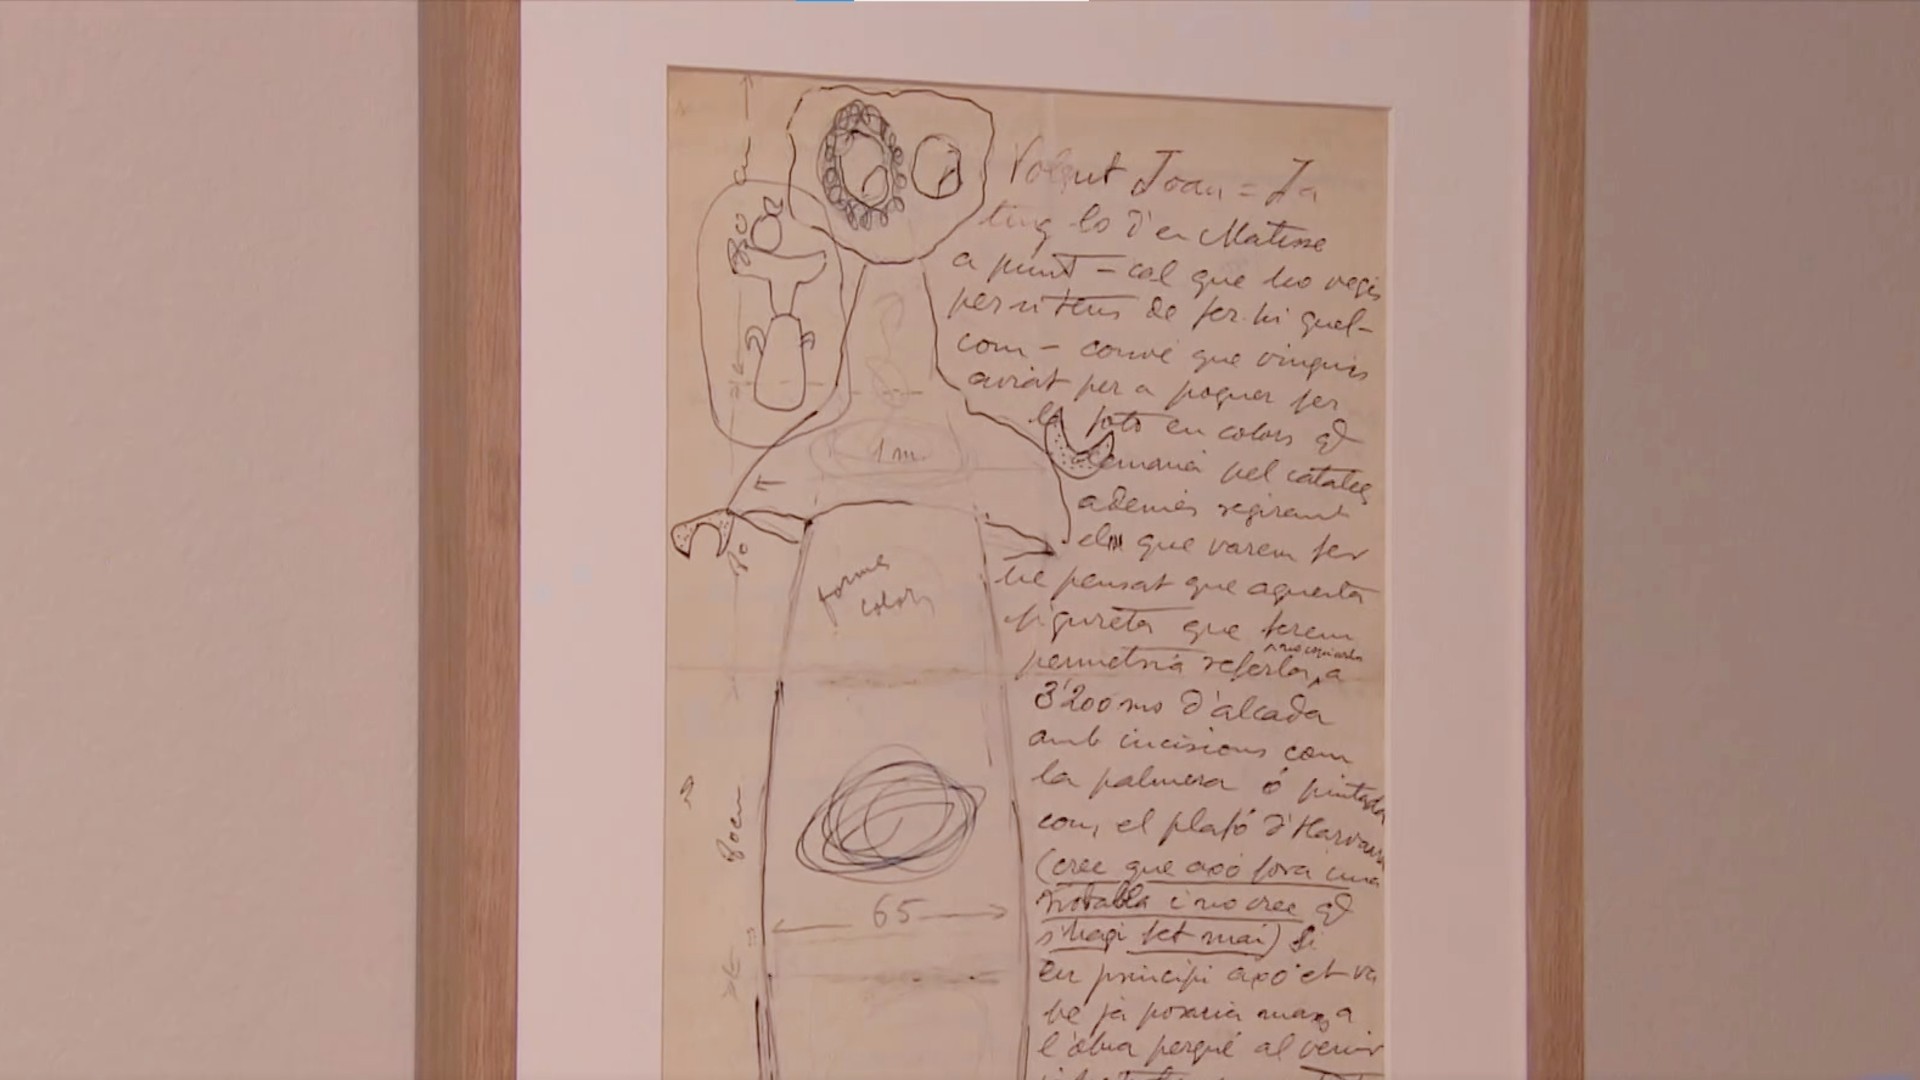 Volgut Joan = Ja
tinc lo d'en Matisse
a punt – cal que ho vegis
per si tens de fer-hi quel-
com – convé que vinguis
aviat per a poguer fer
la foto en colors qe
demana pel catàleg
ademés regirant
el que varem fer
he pensat que aquesta
figureta que ferem
permetria referla, a
3'200 ms d'alçada
amb incisions com
la palmera ó pintada
com el plafó d'Harvard
(crec que axó fora una
troballa i no crec qe
s'hagi fet mai) Si
en principi axó et va
be ja posaria mans a
l'obra perqué al venir
1 m.
80
forma
colors
65
80 cm